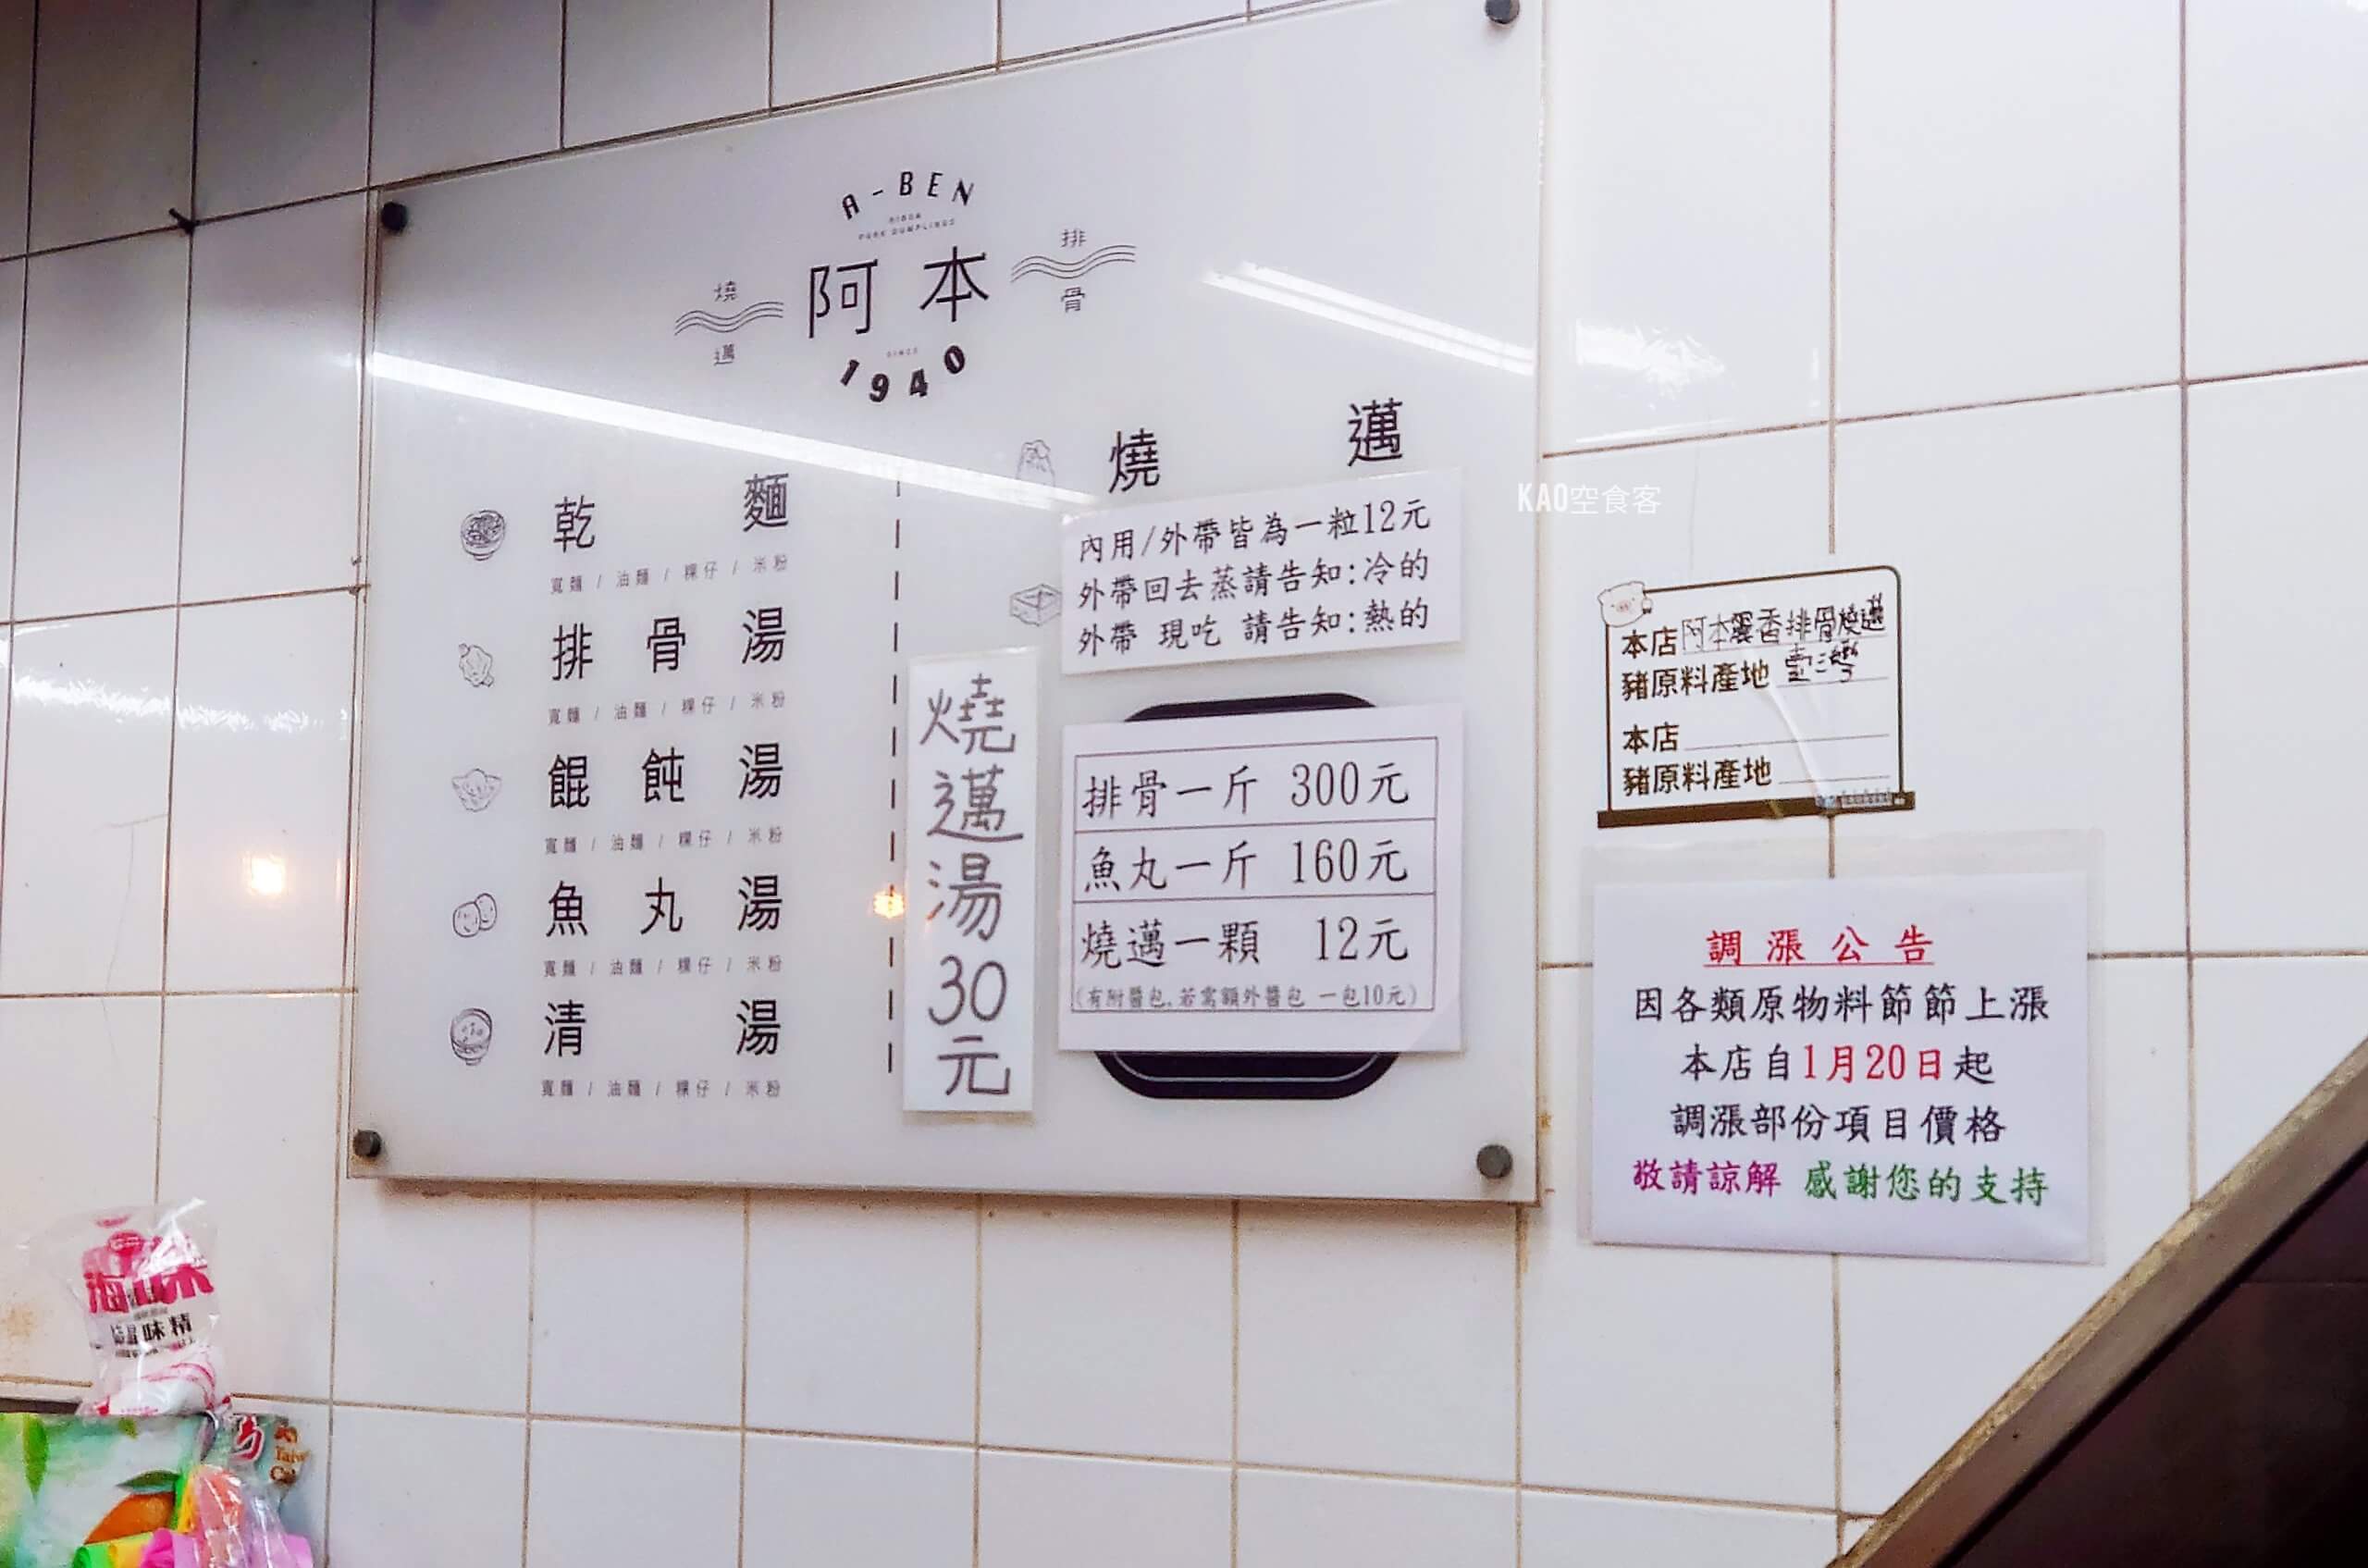 A-BEN
PORK DUMPLINGS
燒邁
阿本
排骨
SINCE
1940
乾麵
寬麵 / 油麵 / 粿仔 / 米粉
排骨湯
寬麵 / 油麵 / 粿仔 / 米粉
餛飩湯
寬麵 / 油麵 / 粿仔 / 米粉
魚丸湯
寬麵 / 油麵 / 粿仔 / 米粉
清湯
寬麵 / 油麵 / 粿仔 / 米粉
燒邁
內用/外帶皆為一粒12元
外帶回去蒸請告知:冷的
外帶 現吃 請告知:熱的
燒邁湯30元
排骨一斤 300元
魚丸一斤 160元
燒邁一顆 12元
(有附醬包,若需額外醬包 一包10元)
KAO空食客
本店阿本飄香排骨燒邁
豬原料產地 臺灣
本店
豬原料產地
調漲公告
因各類原物料節節上漲
本店自1月20日起
調漲部份項目價格
敬請諒解 感謝您的支持
海味
味精